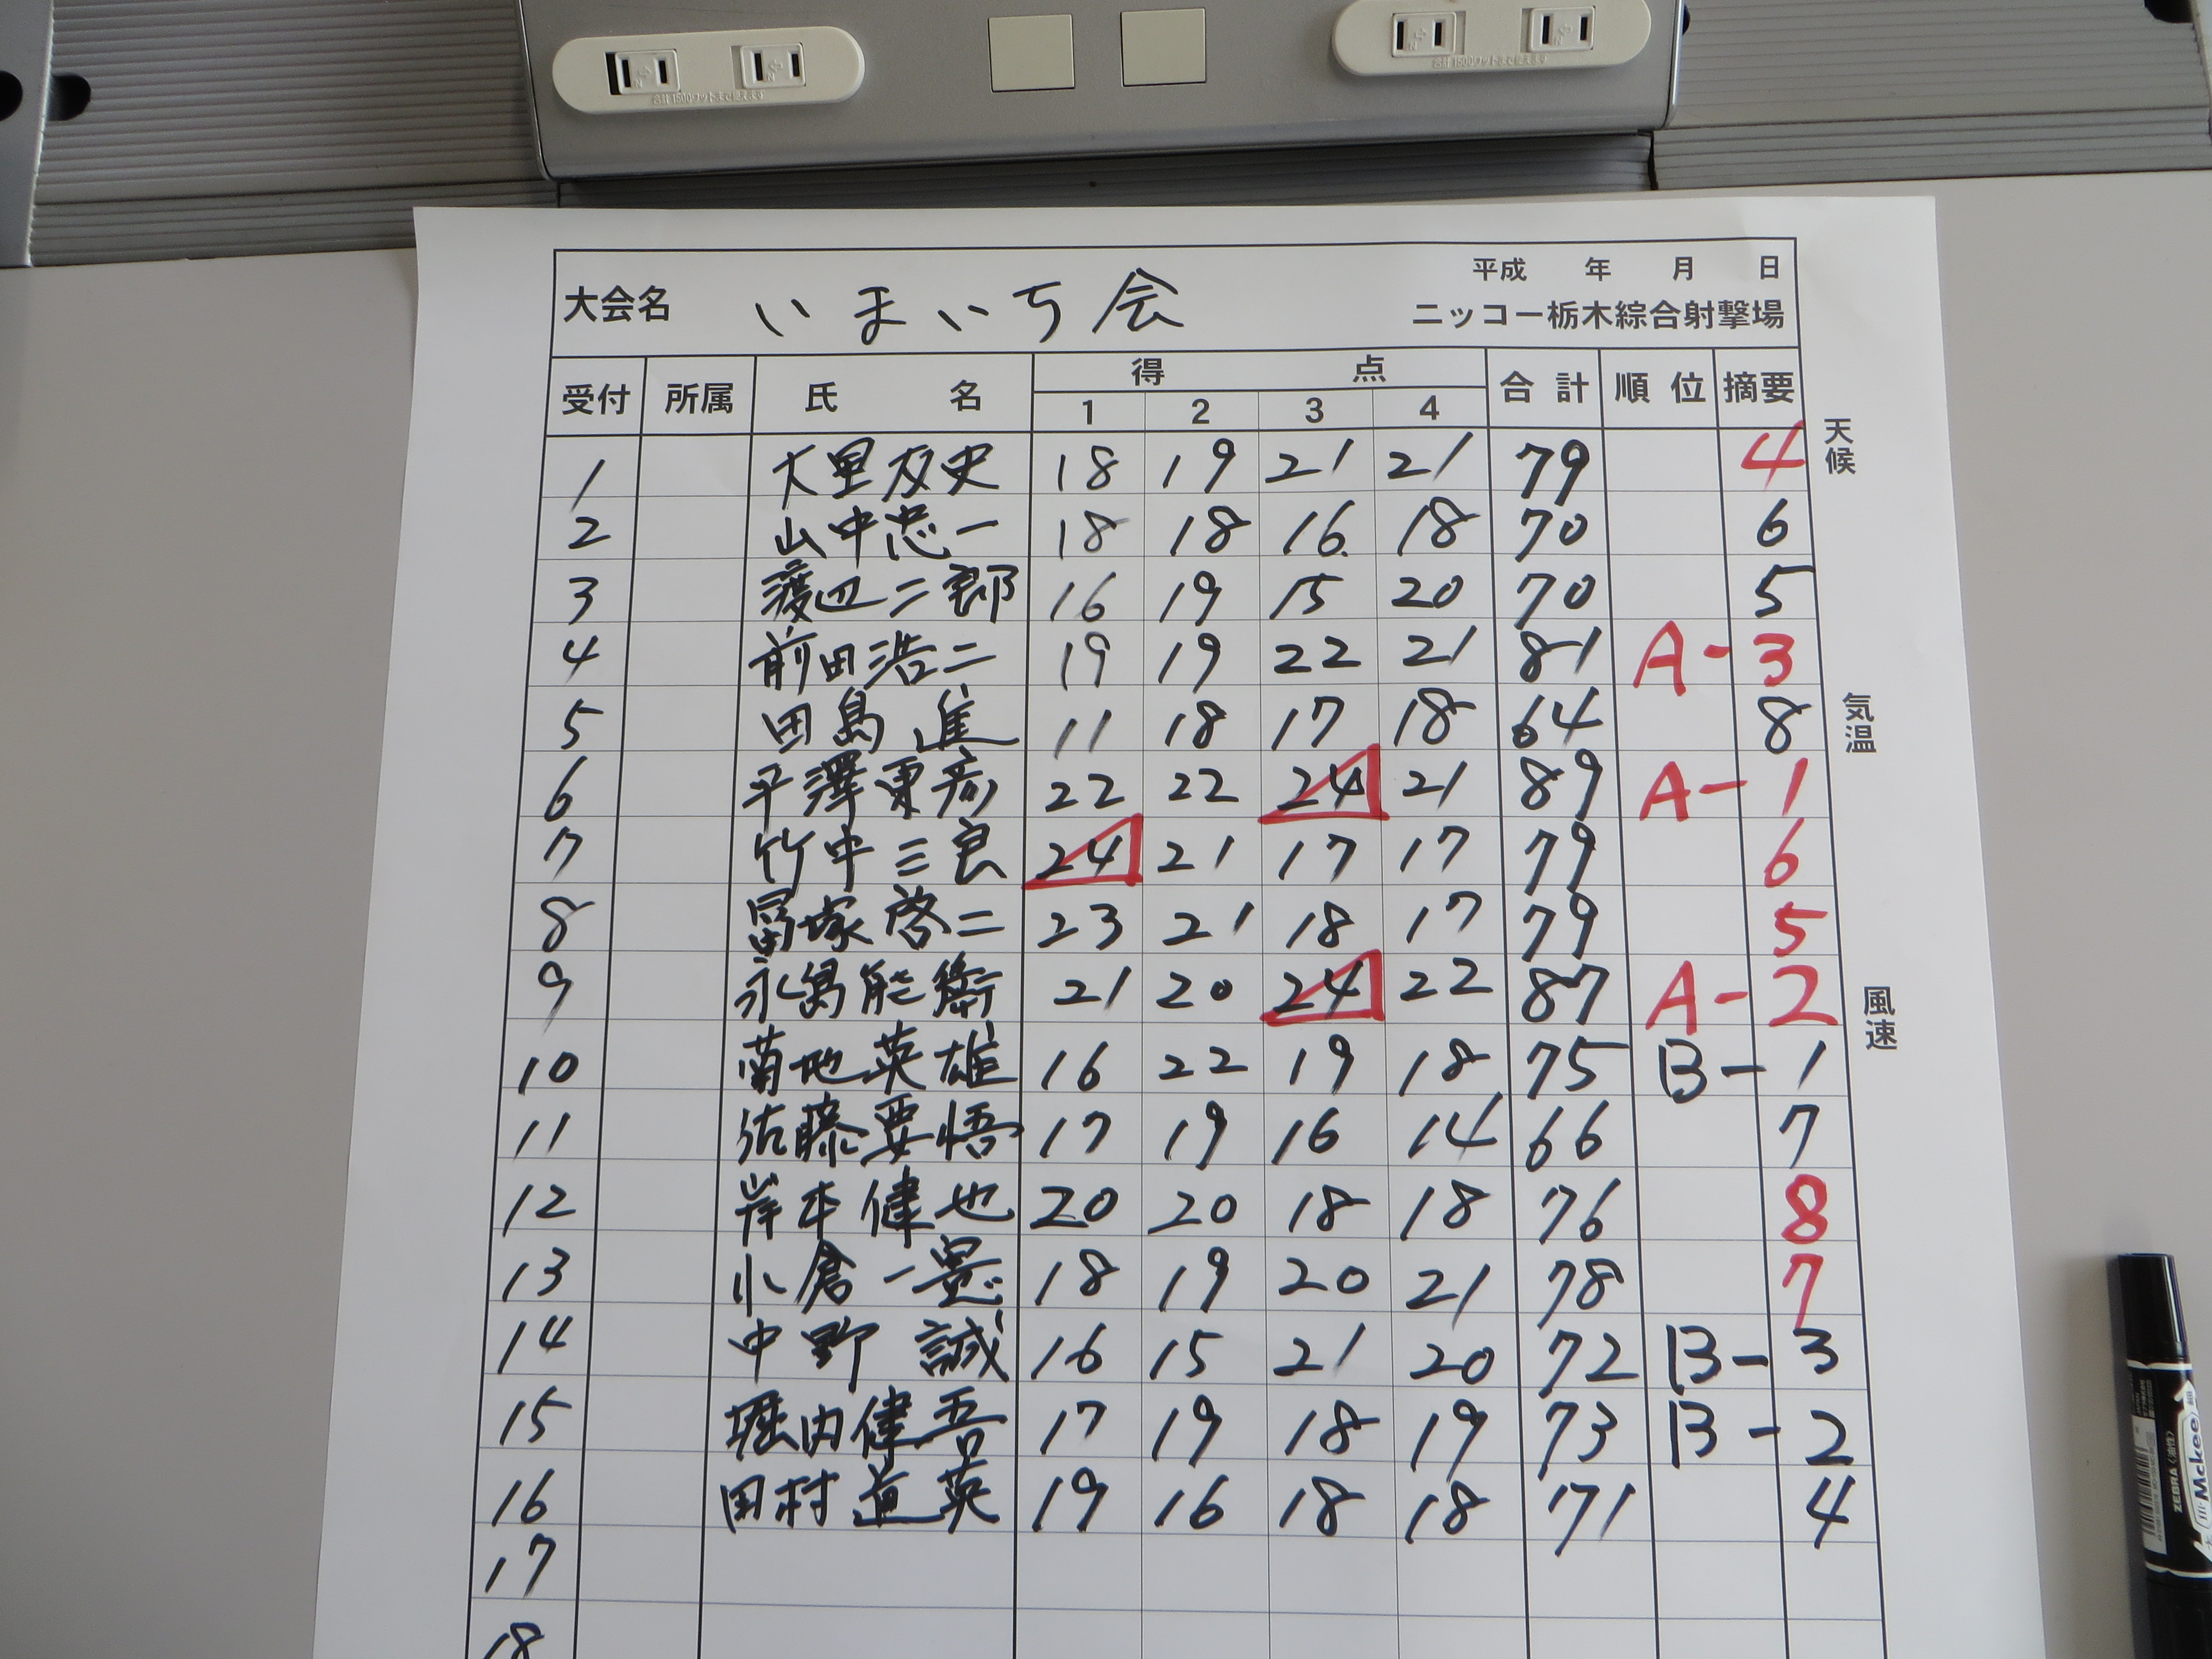 合計1500ワットまで使えます
合計1500ワットまで使えます
平成 年 月 日
大会名 いまいち会
ニッコー栃木綜合射撃場
受付 所属 氏 名 得 点 合計 順位 摘要
1 2 3 4
1 大里友史 18 19 21 21 79 4
2 山中忠一 18 18 16 18 70 6
3 渡辺二郎 16 19 15 20 70 5
4 前田浩二 19 19 22 21 81 A-3
5 田島進 11 18 17 18 64 8
6 平澤東彦 22 22 24 21 89 A-1
7 竹中三良 24 21 17 17 79 6
8 冨塚啓二 23 21 18 17 79 5
9 永島能衛 21 20 24 22 87 A-2
10 菊地英雄 16 22 19 18 75 B-1
11 佐藤要悟 17 19 16 14 66 7
12 岸本健也 20 20 18 18 76 8
13 小倉一憲 18 19 20 21 78 7
14 中野誠 16 15 21 20 72 B-3
15 堀内健吾 17 19 18 19 73 B-2
16 田村道英 19 16 18 18 71 4
17
18
天候
気温
風速
ZEBRA
Mckee